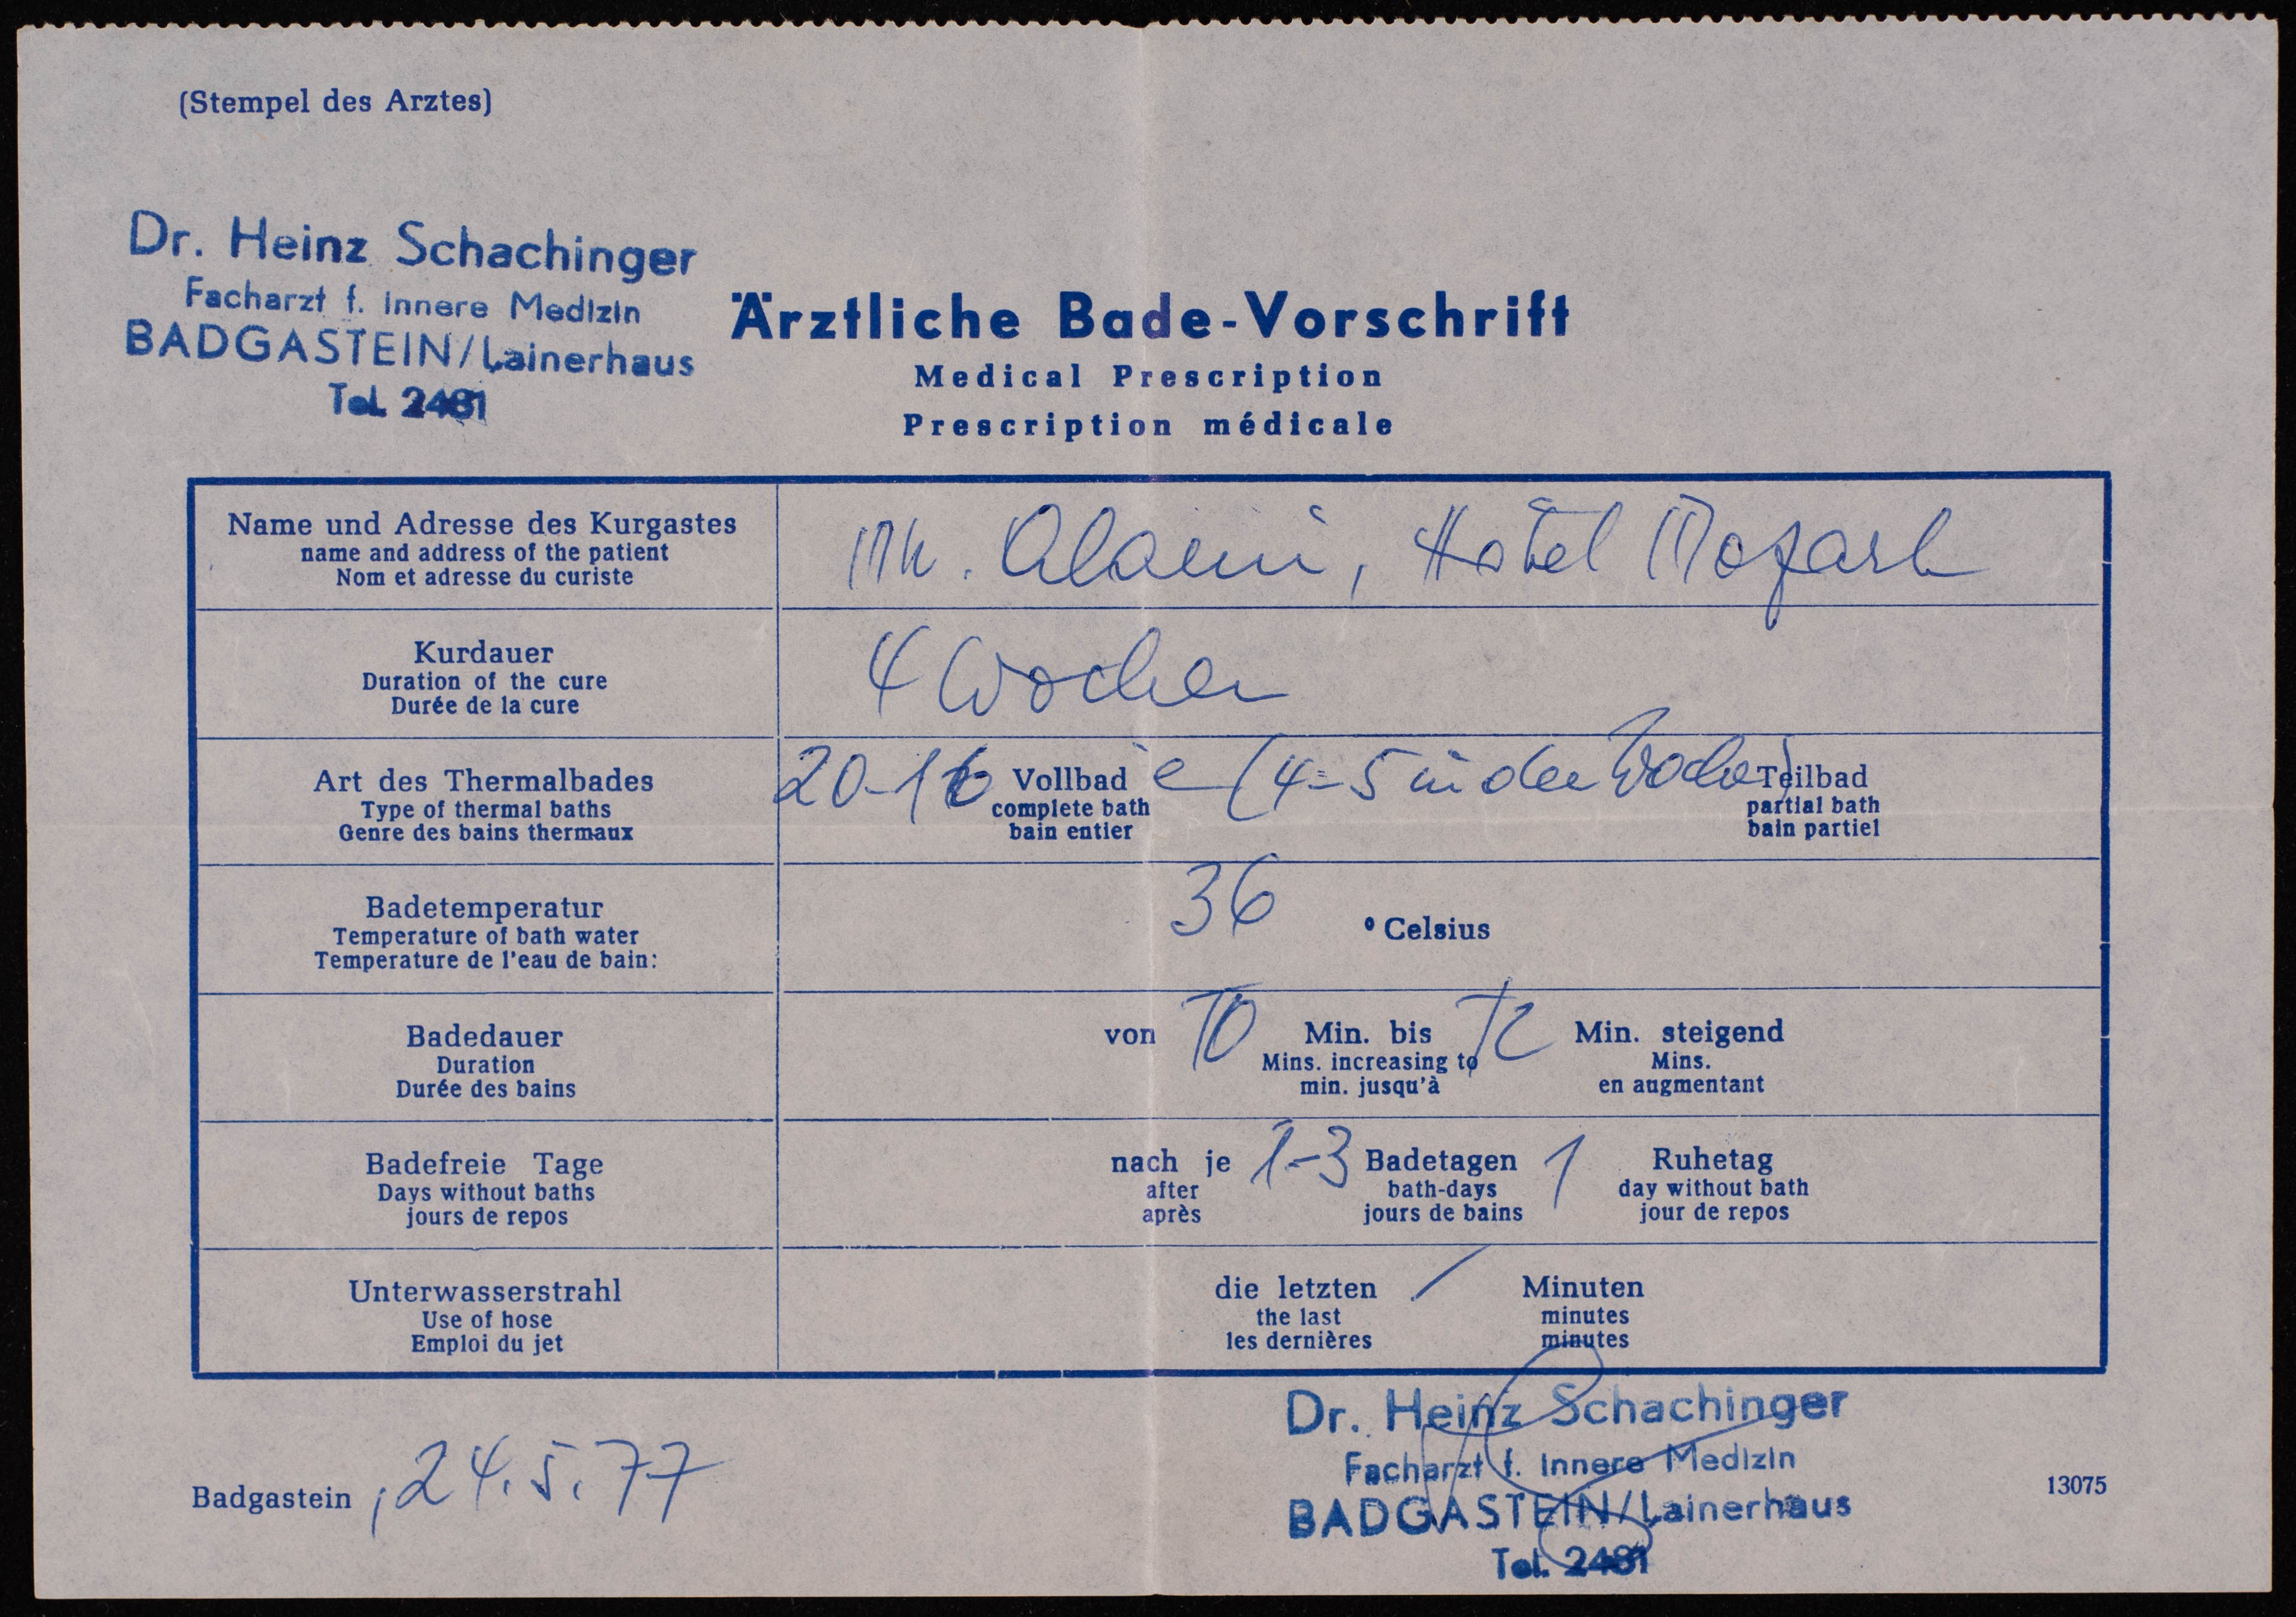 (Stempel des Arztes)
Dr. Heinz Schachinger
Facharzt f. Innere Medizin
BADGASTEIN/Lainerhaus
Tel. 2481
Ärztliche Bade-Vorschrift
Medical Prescription
Prescription médicale
Name und Adresse des Kurgastes
name and address of the patient
Nom et adresse du curiste
Hotel Mozart
Kurdauer
Duration of the cure
Durée de la cure
4 Wochen
Art des Thermalbades
Type of thermal baths
Genre des bains thermaux
20-16 Vollbad e (4-5 in der Woche) Teilbad
complete bath partial bath
bain entier bain partiel
Badetemperatur
Temperature of bath water
Temperature de l'eau de bain:
36 ° Celsius
Badedauer
Duration
Durée des bains
von 10 Min. bis 12 Min. steigend
Mins. increasing to Mins.
min. jusqu'à en augmentant
Badefreie Tage
Days without baths
jours de repos
nach je 1-3 Badetagen 1 Ruhetag
after bath-days day without bath
après jours de bains jour de repos
Unterwasserstrahl
Use of hose
Emploi du jet
die letzten / Minuten
the last minutes
les dernières minutes
Dr. Heinz Schachinger
Facharzt f. Innere Medizin
BADGASTEIN/Lainerhaus
Tel. 2481
Badgastein, 24.5.77
13075